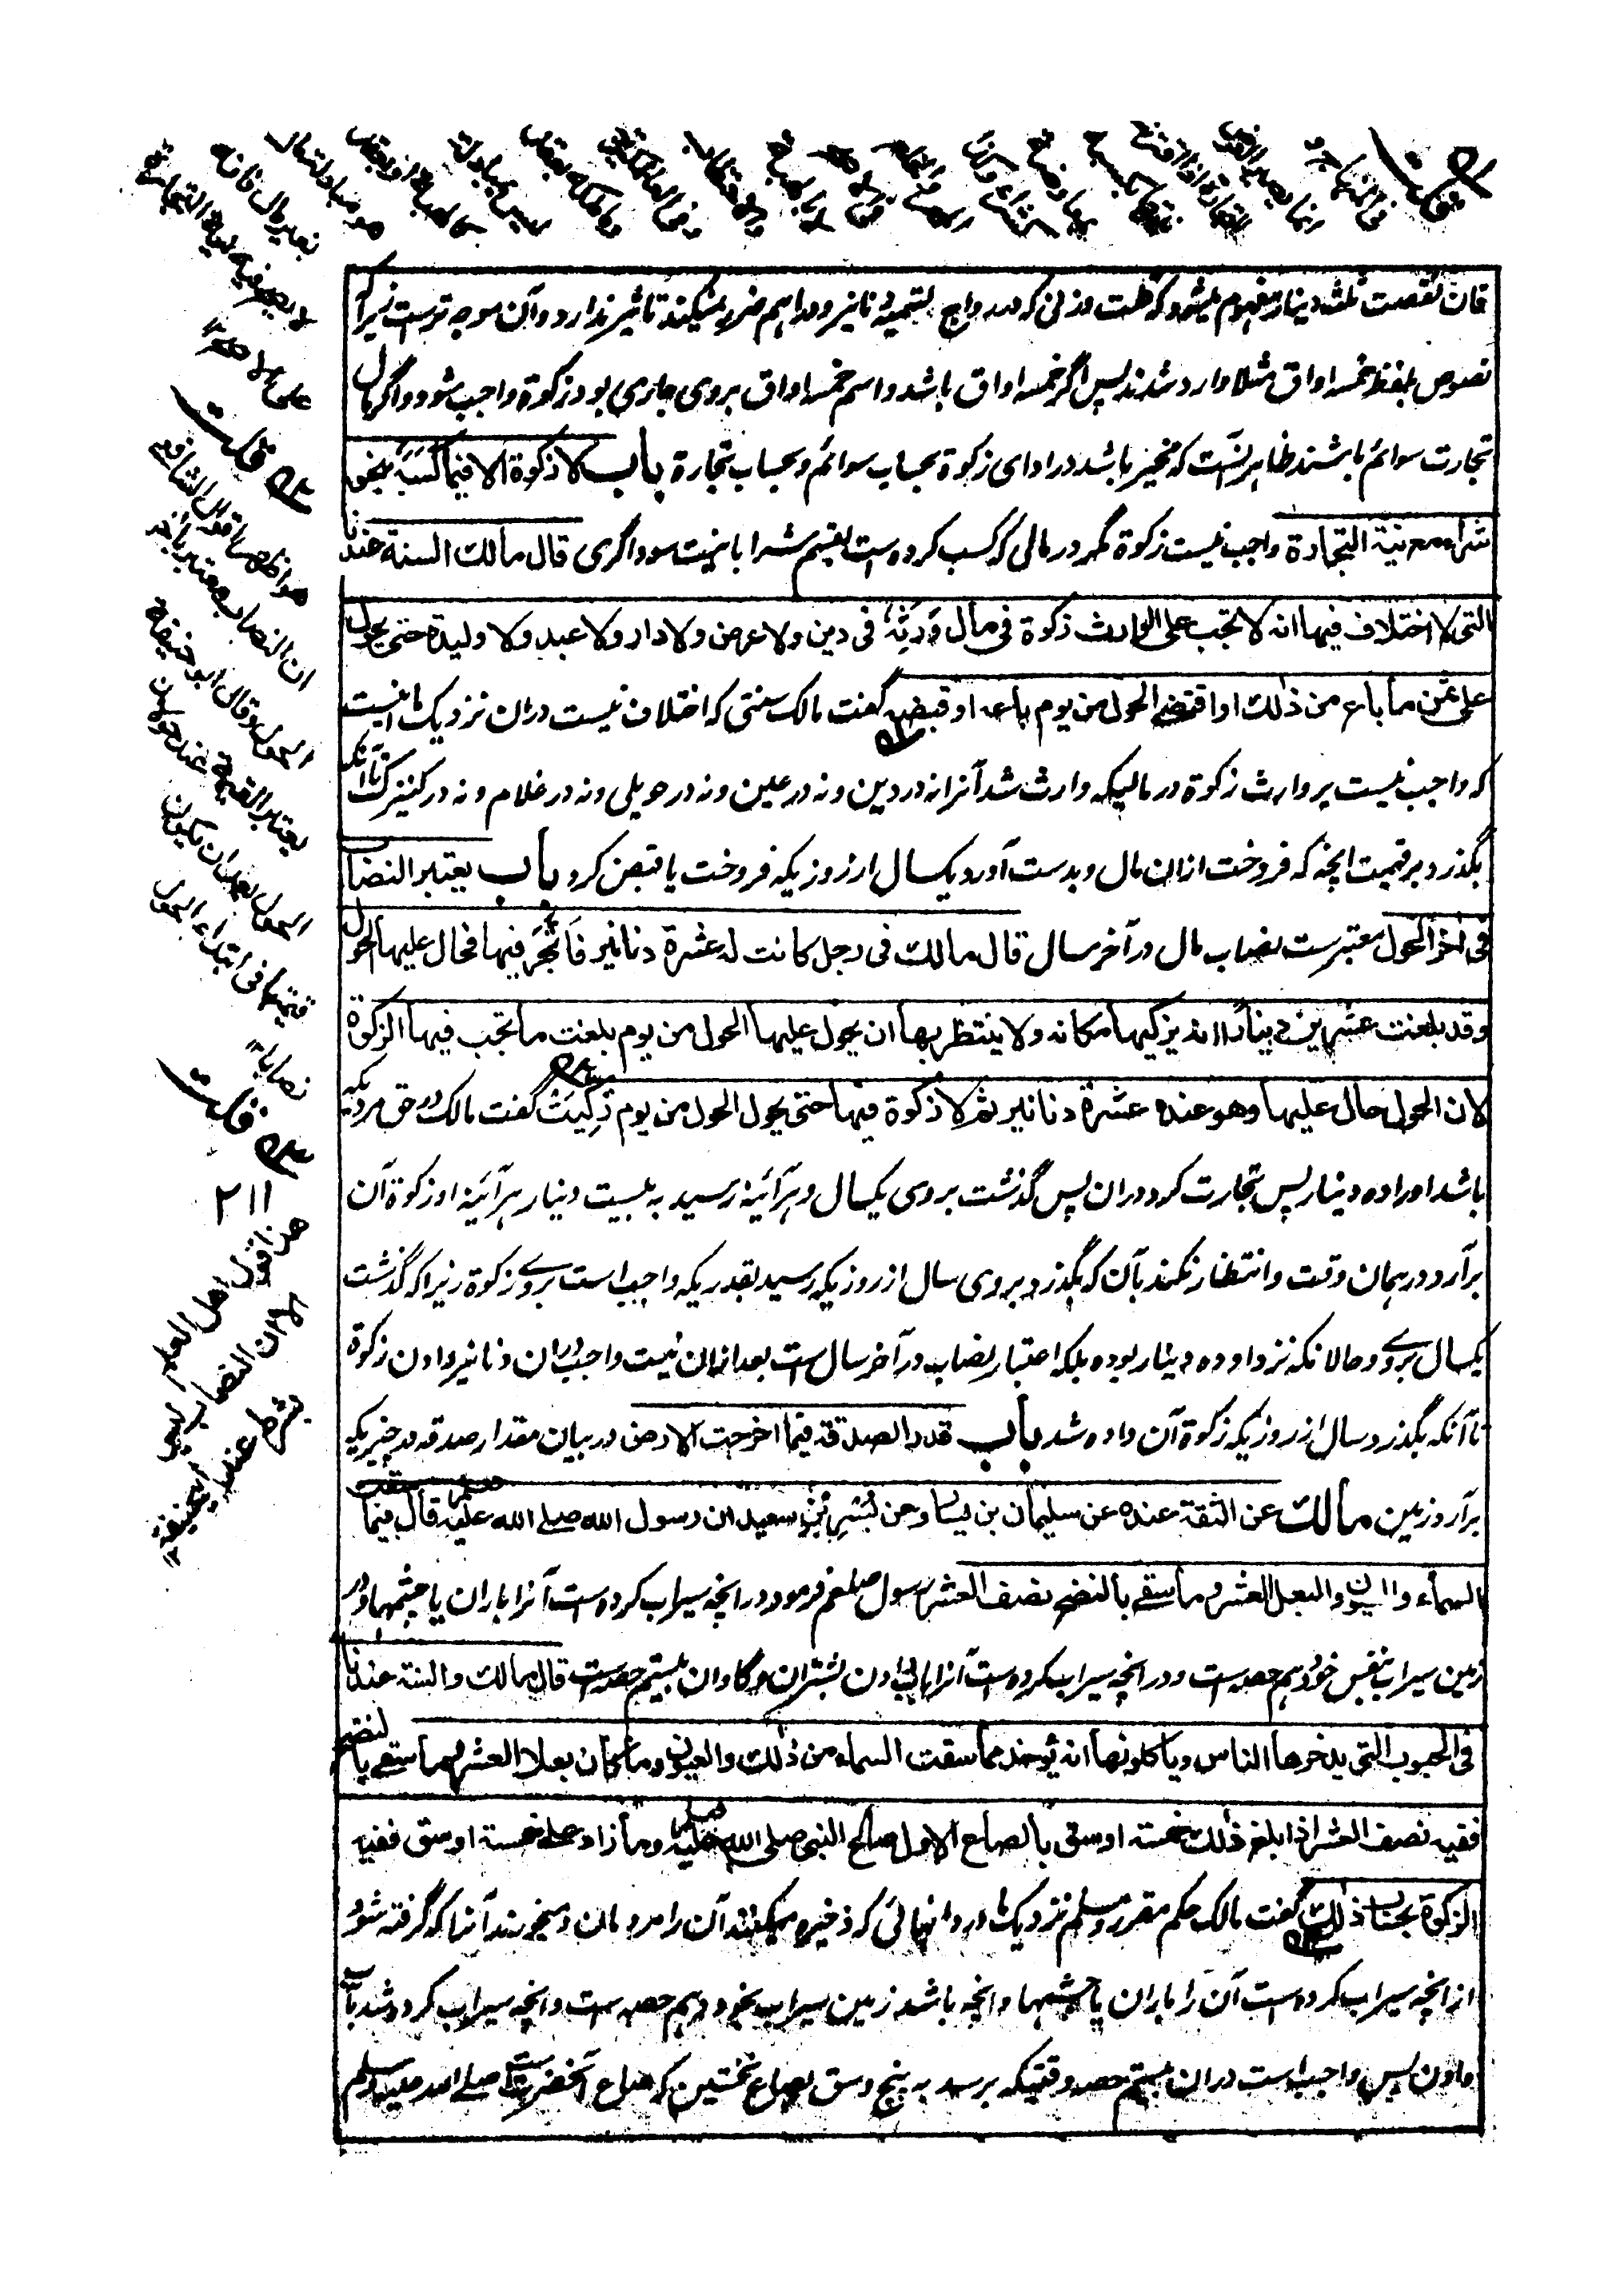 فان نقصت ثلث دینار مفهوم میشود که قلت وزنی که در رواج بتسمیه دنانیر و دراهم ضرر نمیکند تاثیر ندارد و آن موجه ترست زیرا که
نصوص بلفظ خمسه اواق مثلا وارد شدند پس اگر خمسه اواق باشد و اسم خمسه اواق بروی جاری بود زکوة واجب شود و اگر مال
تجارت سوائم باشند ظاهر آنست که مخیر باشد در ادای زکوة بحساب سوائم و بحساب تجارة باب لا زکوة الا فیما کسبه بنحو
شراء مع نیة التجارة واجب نیست زکوة مگر در مالی که کسب کرده است بقسم شرا با نیت سوداگری قال مالك السنة عندنا
التی لا اختلاف فیها انه لا تجب علی الوارث زکوة فی مال ورثه فی دین ولا عرض ولا دار ولا عبد ولا ولیدة حتی یحول
علی ثمن ما باع من ذلك او اقتضی الحول من یوم باعه او قبضه گفت مالک سنتی که اختلاف نیست دران نزدیک ما اینست
که واجب نیست بر وارث زکوة در مالیکه وارث شد آنرا نه در دین و نه در عین و نه در حویلی و نه در غلام و نه در کنیزک تا آنکه
بگذرد بر قیمت انچه که فروخت ازان مال و بدست آورد یکسال از روزیکه فروخت یا قبض کرد باب یعتبر النصاب
فی اخر الحول معتبرست نصاب مال در آخر سال قال مالك فی رجل کانت له عشرة دنانیر فاتجر فیها فحال علیها الحول
وقد بلغت عشرین دینارا انه یزکیها مکانه ولا ینتظر بها ان یحول علیها الحول من یوم بلغت ما تجب فیها الزکوة
لان الحول حال علیها وهو عنده عشرة دنانیر ثم لا زکوة فیها حتی یحول الحول من یوم زکیت گفت مالک در حق مردیکه
باشد او را ده دینار پس تجارت کرد دران پس گذشت بروی یکسال و هرآئینه رسید به بیست دینار هرآئینه او زکوة آن
برآرد در همان وقت و انتظار نکند بآن که بگذرد بروی سال از روزیکه رسید بقدریکه واجب است بروے زکوة زیرا که گذشت
یکسال بروے و حالانکه نزد او ده دینار بوده بلکه اعتبار نصاب در آخر سال ست بعد ازان نیست واجب دران دنانیر دادن زکوة
تا آنکه بگذرد سال از روزیکه زکوة آن داده شد باب قدر الصدقة فیما اخرجت الارض در بیان مقدار صدقه در چیزیکه
برآرد زمین مالك عن الثقة عنده عن سلیمان بن یسار وعن بسر بن سعید ان رسول الله صلی الله علیه وسلم قال فیما سقت
السماء والعیون والبعل العشر وما سقی بالنضح نصف العشر رسول صلعم فرمود در انچه سیراب کرده است آنرا باران یا چشمها و در
زمین سیراب بنفس خود دهم حصه ست و در انچه سیراب کرده ست آنرا بآب دادن بشتران و گاوان بیستم حصه ست قال مالك والسنة عندنا
فی الحبوب التی یدخرها الناس ویاکلونها انه یوخذ مما سقت السماء من ذلك والعیون وما کان بعلا العشر وما سقی بالنضح
ففیه نصف العشر اذا بلغ ذلك خمسة اوسق بالصاع الاول صاع النبی صلی الله علیه وسلم وما زاد علی خمسة اوسق ففیه
الزکوة بحساب ذلك گفت مالک حکم مقرر و مسلم نزدیک ما در دانهائی که ذخیره میکنند آن را مردمان و میخورند آنرا که گرفته شود
از انچه سیراب کرده است آن را باران یا چشمها و انچه باشد زمین سیراب بخود دهم حصه ست و انچه سیراب کرده شد بآب
دادن پس واجب است دران بیستم حصه وقتیکه برسد به پنج وسق بصاع نخستین که صاع آنحضرت ست صلی الله علیه وسلم
قلت
هو اظهر اقوال الشافعی
ان النصاب یعتبر باخر
الحول وقال ابو حنیفة
یعتبر القیمة عند حولان
الحول بعد ان یکون
قیمتها فی ابتداء الحول
نصابا
قلت
هذا قول اهل العلم
الا ان النصاب لیس
بشرط عند ابی حنیفة